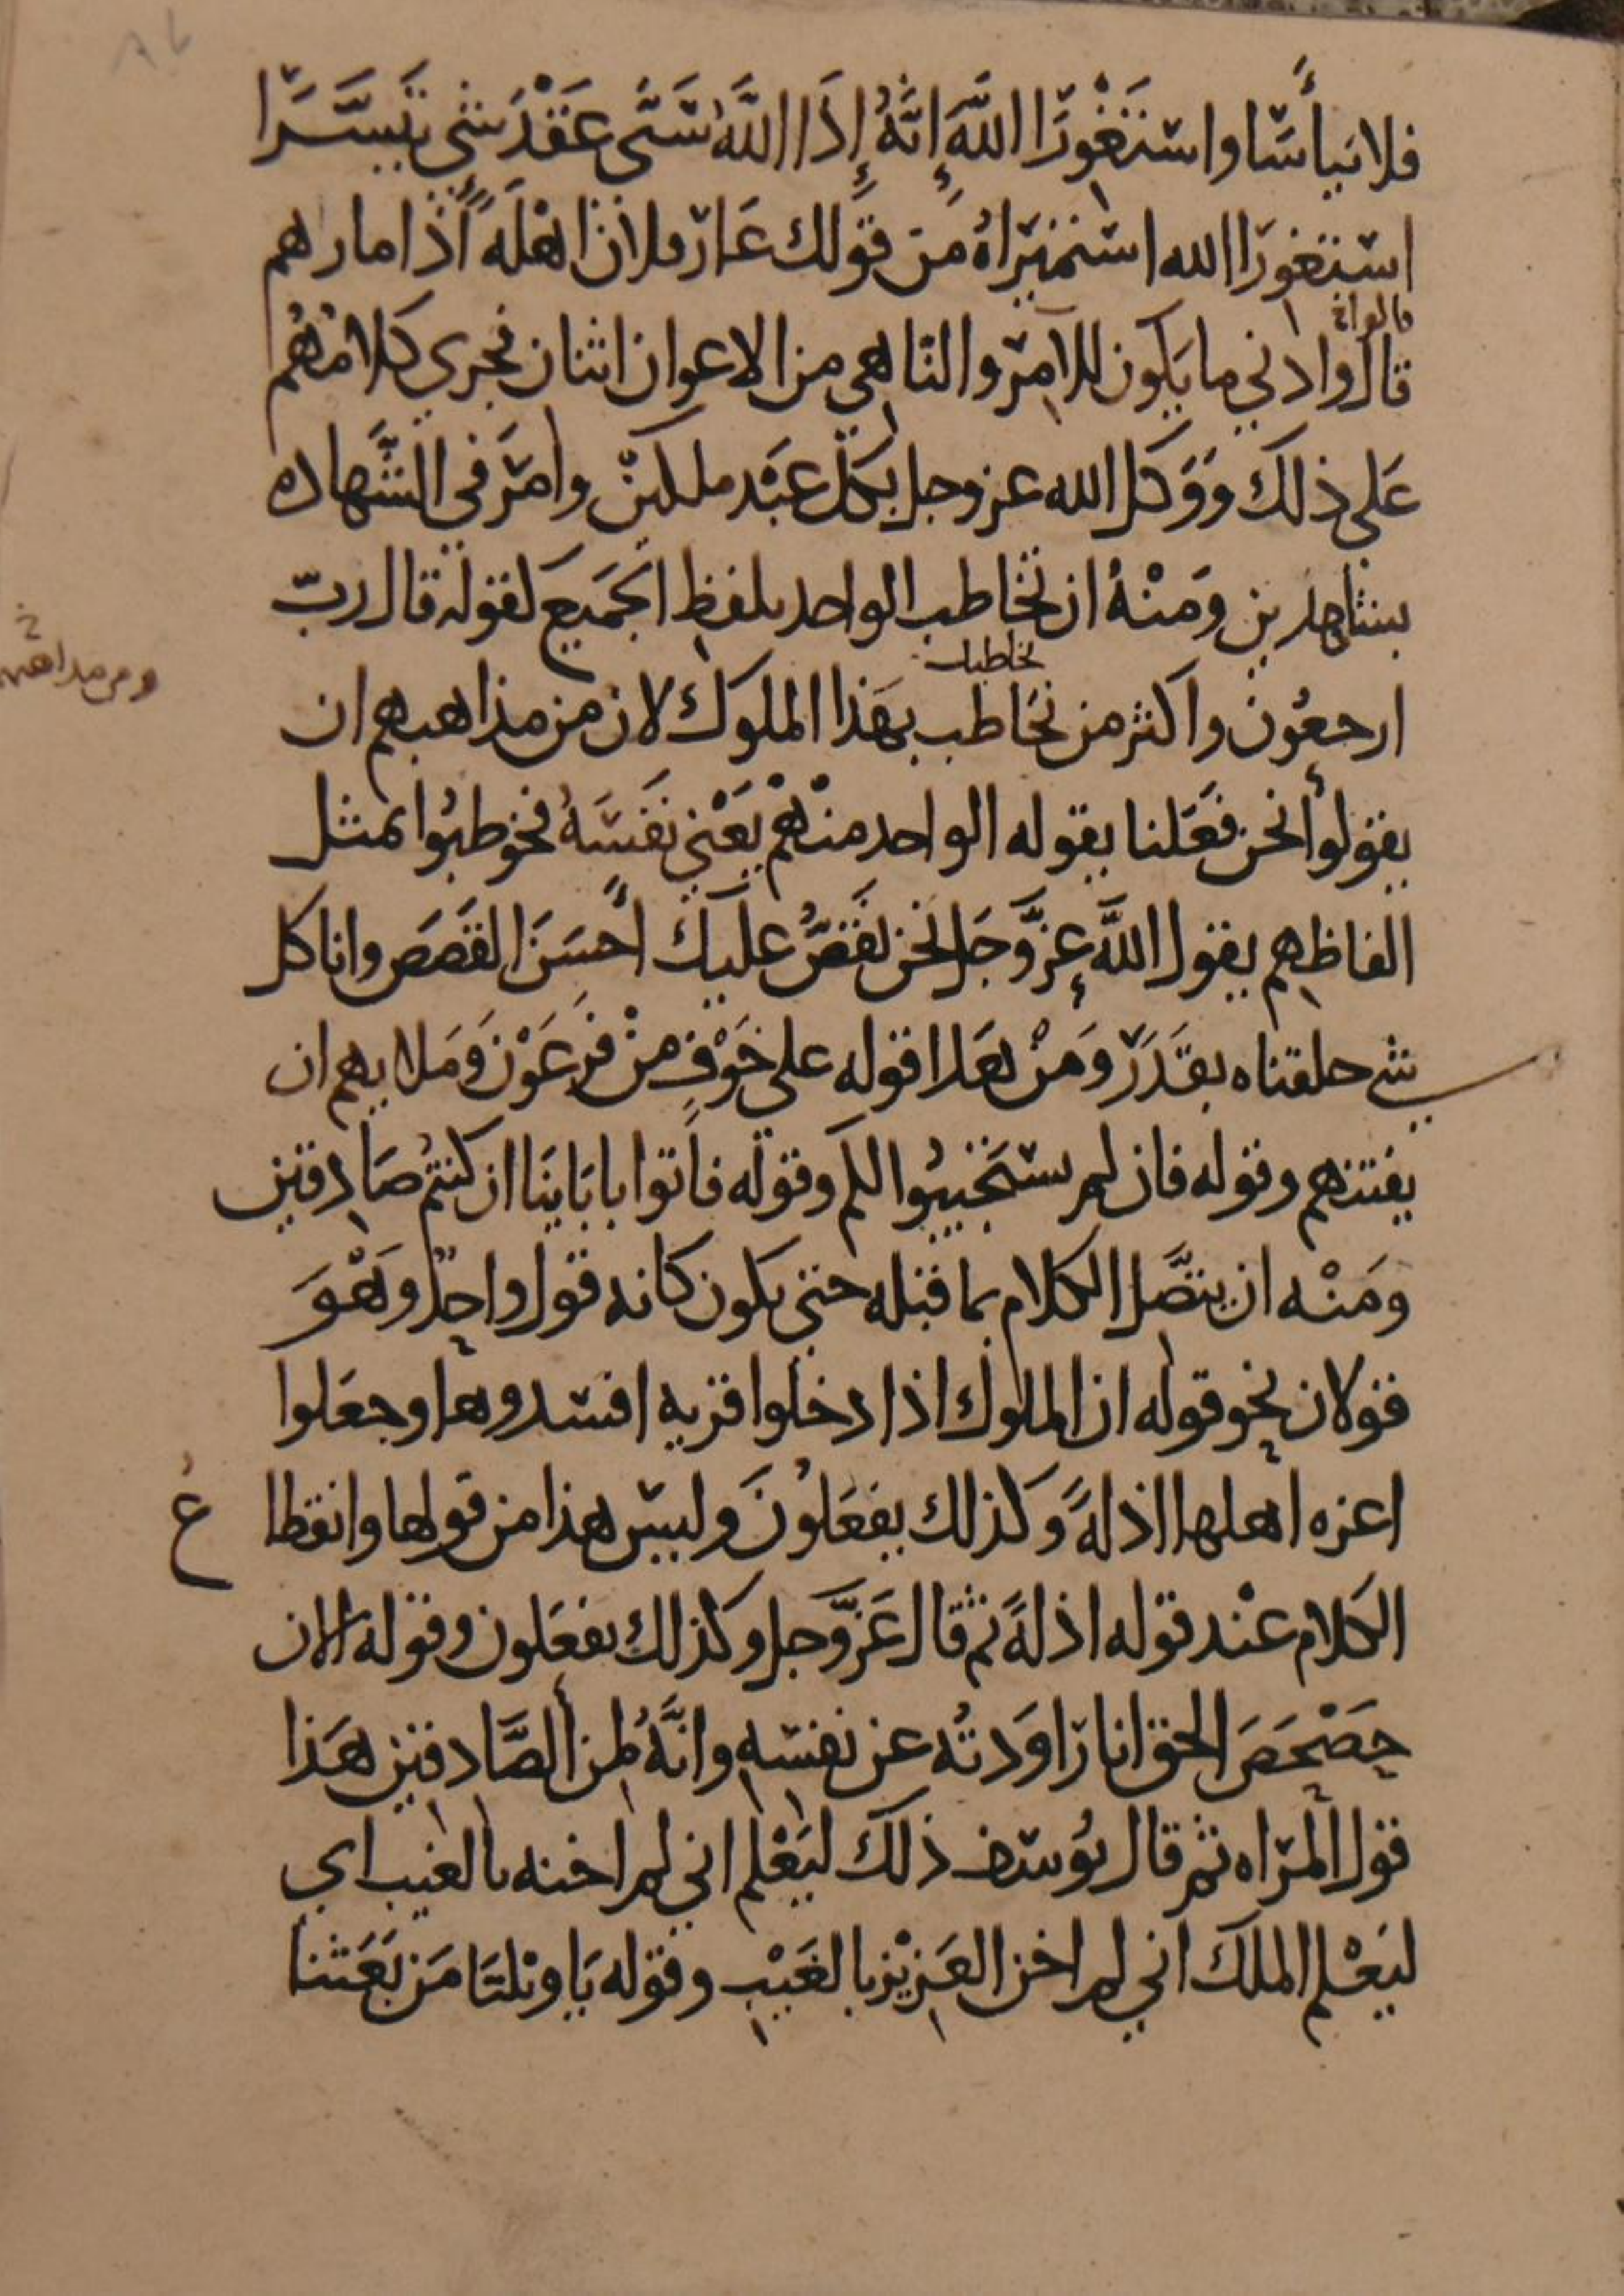 فلا تيأسا واستغورا الله إنه إذا الله سنى عقد شي تيسرا
استغورا الله استميراه من قولك غار فلان اهله اذا مارهم
قالوا وادنى ما يكون للامر والناهي من الاعوان اثنان فجرى كلامهم
على ذلك ووكل الله عز وجل بكل عبد ملكين وامر في الشهاده
بشاهدين ومنه ان تخاطب الواحد بلفظ الجميع كقوله قال رب
ارجعون واكثر من تخاطب بهذا الملوك لان من مذاهبهم ان
يقولوا نحن فعلنا بقوله الواحد منهم يعني نفسه فخوطبوا بمثل
الفاظهم يقول الله عز وجل نحن نقص عليك احسن القصص وانا كل
شي خلقناه بقدر ومن هذا قوله على خوف من فرعون وملايهم ان
يفتنهم وقوله فان لم يستجيبوا لكم وقوله فاتوا باباينا ان كنتم صادقين
ومنه ان يتصل الكلام بما قبله حتى يكون كانه قول واحد وهو
قولان نحو قوله ان الملوك اذا دخلوا قريه افسدوها وجعلوا
اعزه اهلها اذلة وكذلك يفعلون وليس هذا من قولها وانقطا ع
الكلام عند قوله اذلة ثم قال عز وجل وكذلك يفعلون وقوله الان
حصحص الحق انا راودته عن نفسه وانه لمن الصادقين هذا
قول المراه ثم قال يوسف ذلك ليعلم اني لم اخنه بالغيب اي
ليعلم الملك اني لم اخن العزيز بالغيب وقوله يا ويلنا من بعثنا